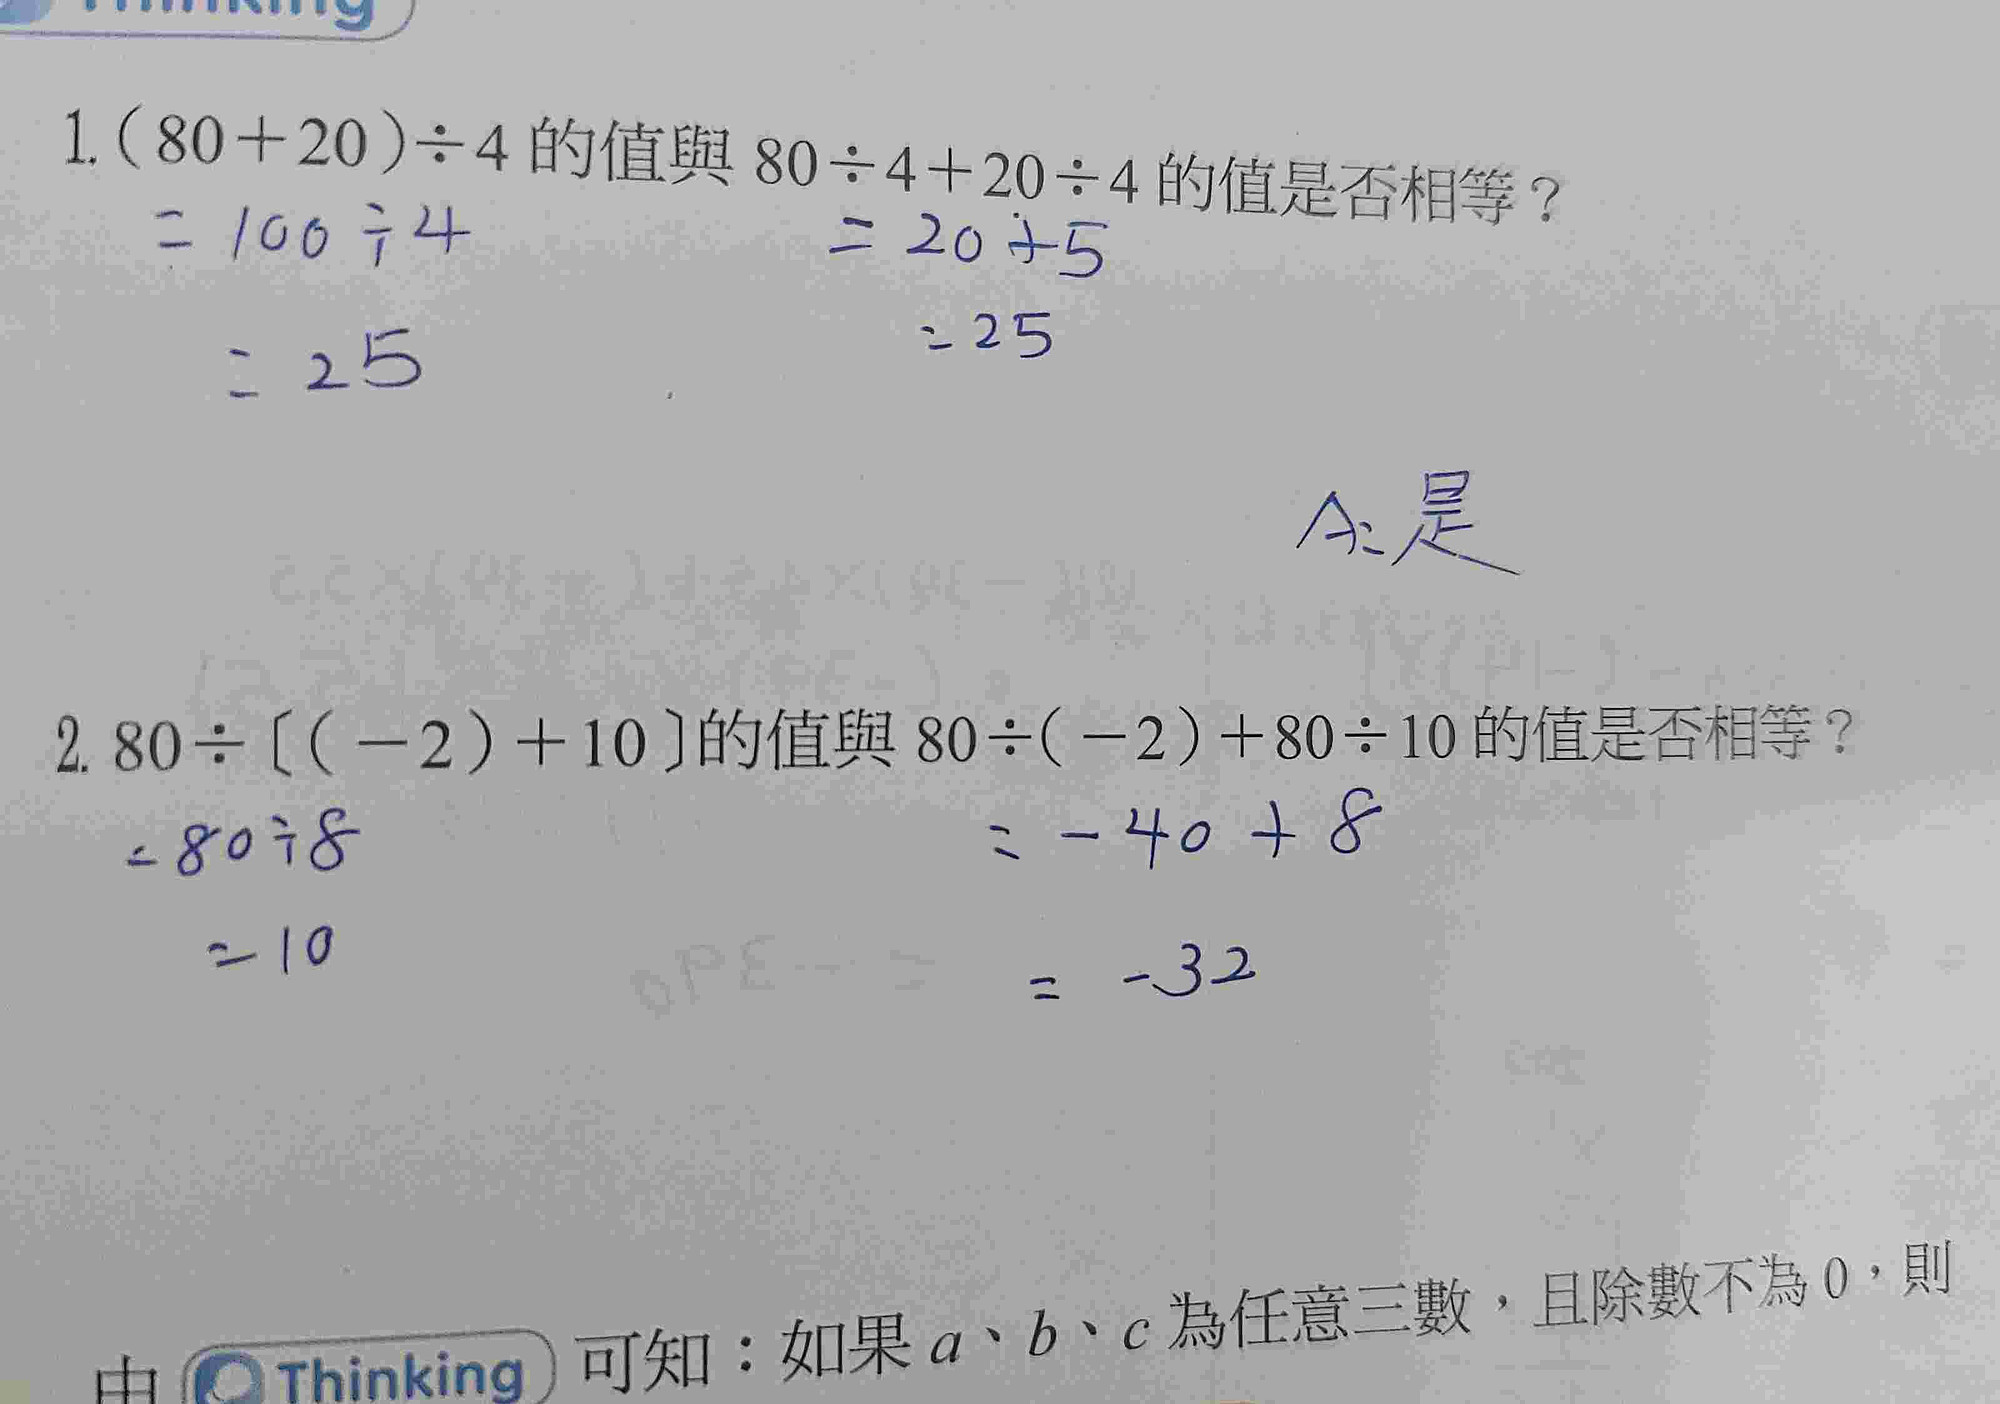 Thinking
1.(80+20)÷4 的值與 80÷4+20÷4 的值是否相等？
= 100÷4 = 20+5
= 25 = 25
A: 是
2. 80÷〔(-2)+10〕的值與 80÷(-2)+80÷10 的值是否相等？
= 80÷8 = -40 + 8
= 10 = -32
由 Thinking 可知：如果 a、b、c 為任意三數，且除數不為 0，則